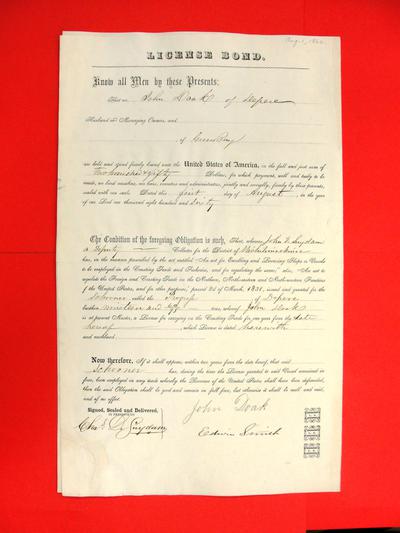 LICENSE BOND.
Know all Men by these Presents:
That we John Doak of Depere
Husband or Managing Owner, and
of Green Bay
are held and stand firmly bound unto the United States of America, in the full and just sum of
two hundred & fifty Dollars, for which payment, well and truly to be
made, we bind ourselves, our heirs, executors and administrators, jointly and severally, firmly by these presents,
sealed with our seals. Dated this first day of August, in the year
of our Lord one thousand eight hundred and Sixty
The Condition of the foregoing Obligation is such, That, whereas John V. Suydam
a Deputy Collector for the District of Michilimackinac
has, in the manner prescribed by the act entitled An act for Enrolling and Licensing Ships or Vessels
to be employed in the Coasting Trade and Fisheries, and for regulating the same; also, An act to
regulate the Foreign and Coasting Trade on the Northern, Northeastern and Northwestern Frontiers
of the United States, and for other purposes, passed 2d of March, 1831, issued and granted for the
Schooner called the of Depere
burthen nineteen and tons, whereof John Doak
is at present Master, a License for carrying on the Coasting Trade for one year from the date
hereof, which License is dated herewith
and numbered
Now therefore, If it shall appear, within two years from the date hereof, that said
Schooner has, during the time the License granted to said Vessel remained in
force, been employed in any such whereby the Revenue of the United States shall have been defrauded,
then the said Obligation shall be void and remain in full force, but otherwise it shall be null and void,
and of no effect.
Signed, Sealed and Delivered,
IN PRESENCE OF
John Doak
Suydam
Edwin